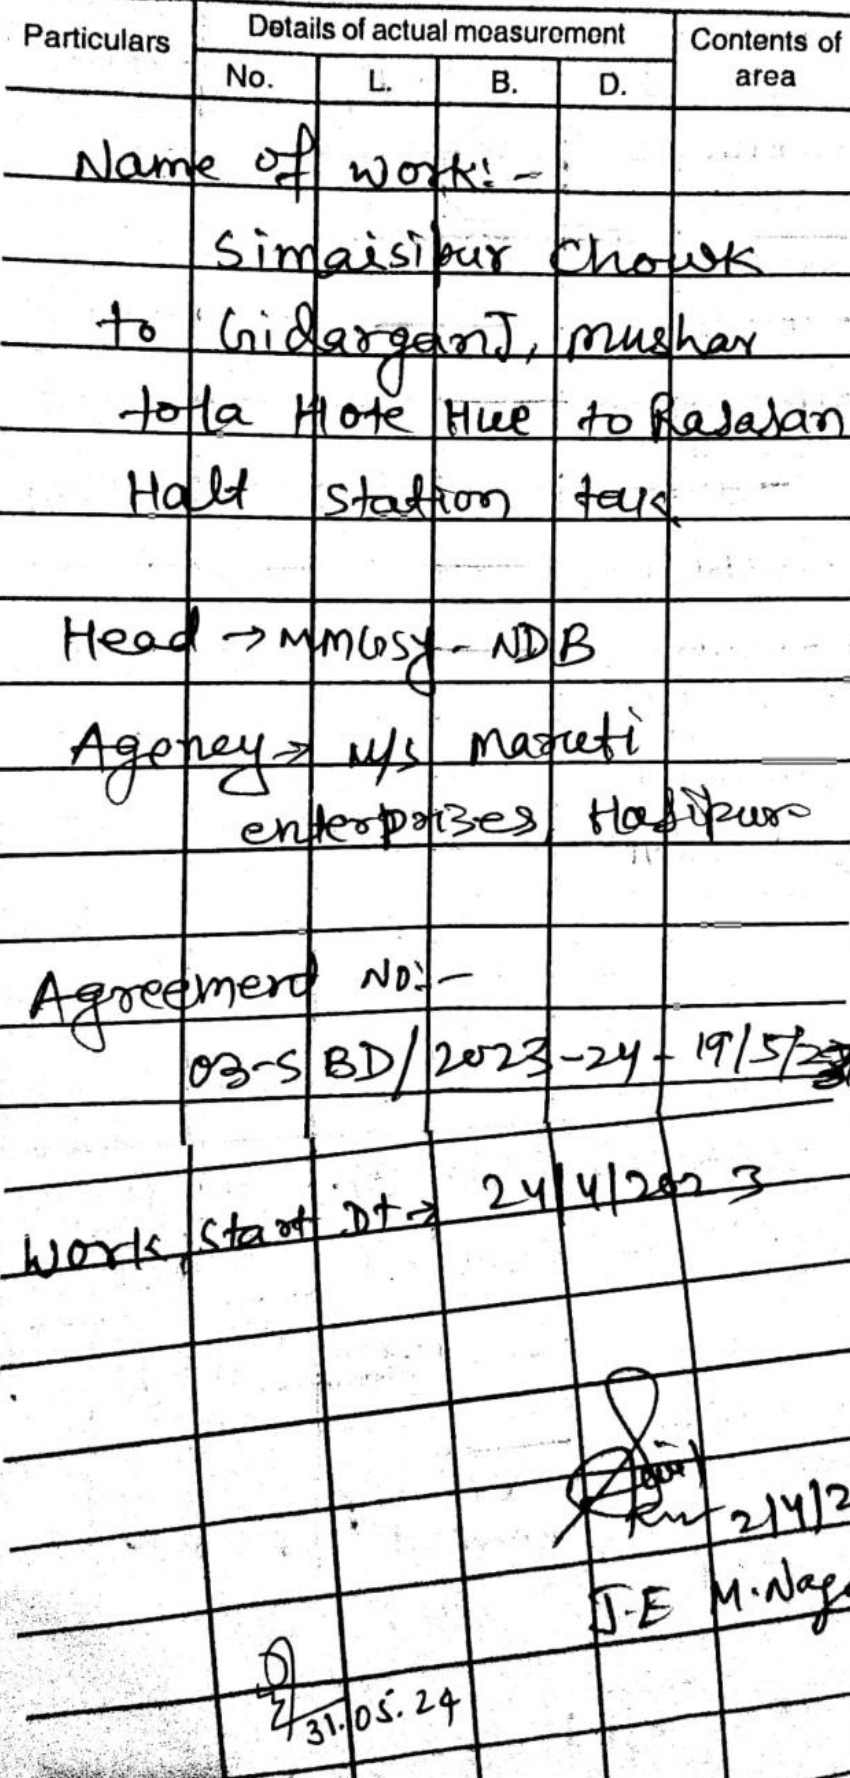 Particulars
Details of actual measurement
Contents of area
No. L. B. D.
Name of work:-
Simaisipur Chowk
to Gidarganj, mushar
tola Hote Hue to Rajasan
Halt station tak
Head → MMGSY - NDB
Agency → M/s Maruti
enterprizes Hajipur
Agreement No:-
03-SBD/2023-24 - 19/5/23
Work start Dt → 24/4/2023
2/4/2
J.E M.Naga
31.05.24